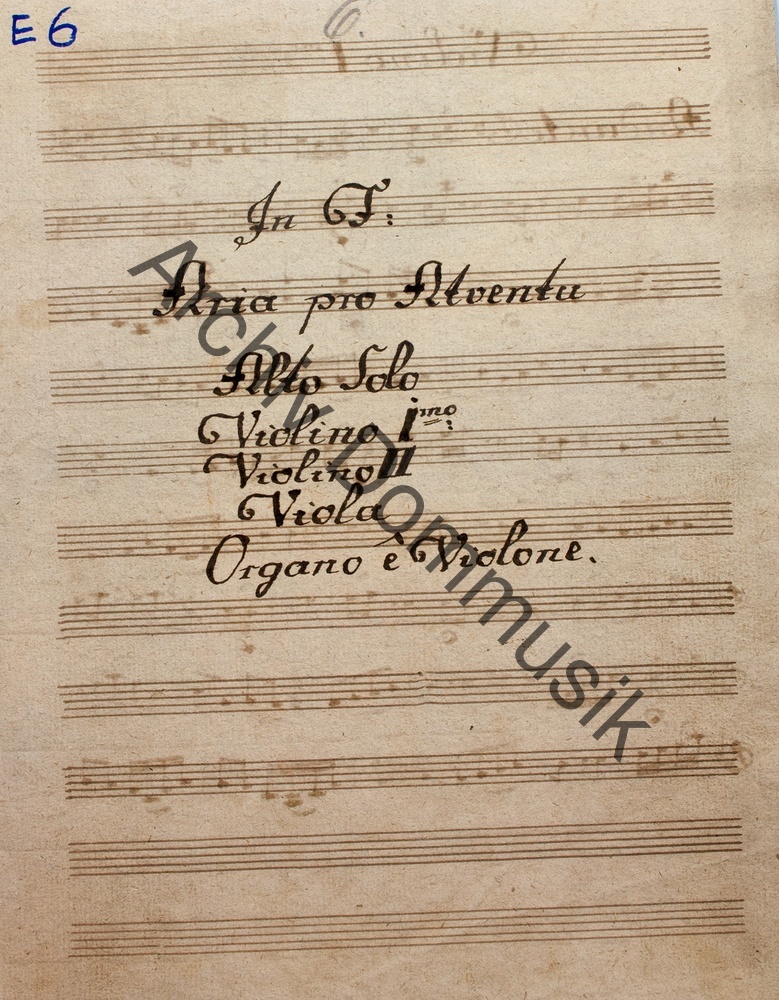 E6
6.
In F:
Aria pro Atventu
Alto Solo
Violino I mo:
Violino II
Viola
Organo è Violone.
Archiv Dommusik